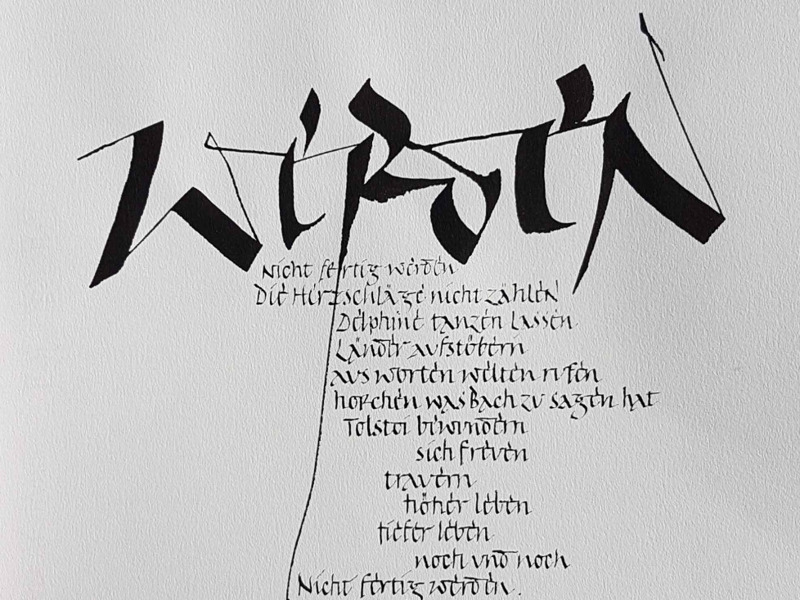 werden
Nicht fertig werden
Die Herzschläge nicht zählen
Delphine tanzen lassen
Länder aufstöbern
aus worten welten rufen
horchen was Bach zu sagen hat
Tolstoi bewundern
sich freuen
trauern
höher leben
tiefer leben
noch und noch
Nicht fertig werden.